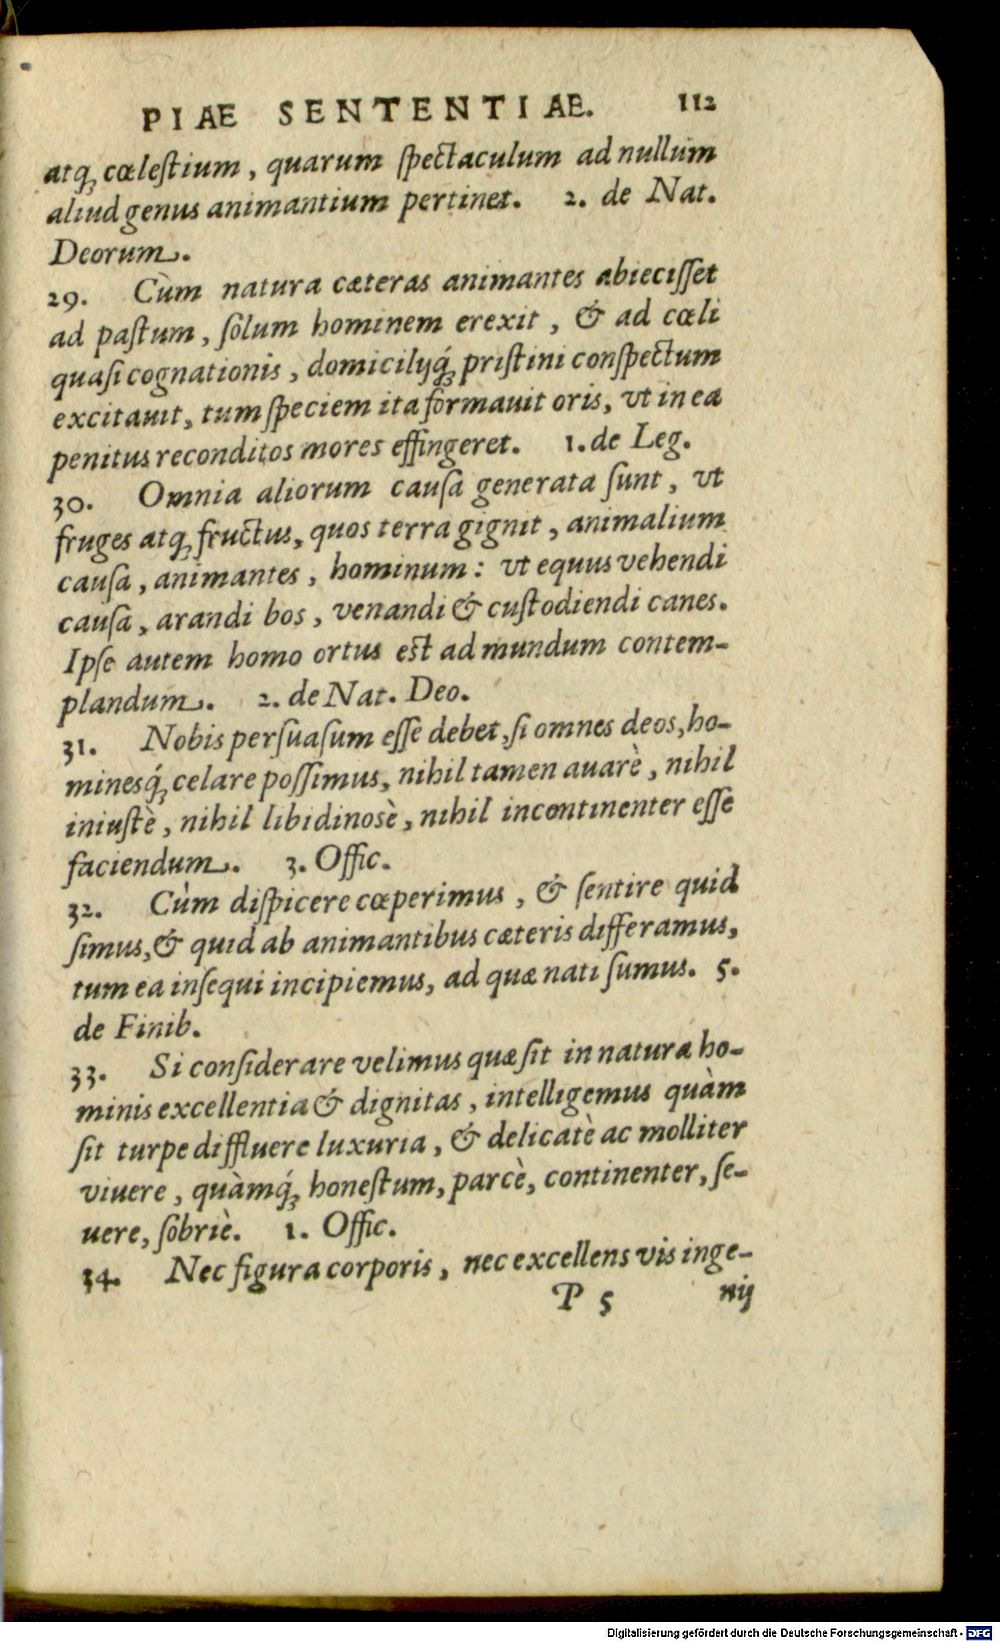 PIAE SENTENTIAE. 112
atq́; cœleſtium, quarum ſpectaculum ad nullum
aliud genus animantium pertinet. 2. de Nat.
Deorum.
29. Cùm natura cæteras animantes abieciſſet
ad paſtum, ſolum hominem erexit, & ad cœli
quaſi cognationis, domicilijq́; priſtini conſpectum
excitauit, tum ſpeciem ita formauit oris, vt in ea
penitus reconditos mores effingeret. 1. de Leg.
30. Omnia aliorum cauſa generata ſunt, vt
fruges atq; fructus, quos terra gignit, animalium
cauſa, animantes, hominum: vt equus vehendi
cauſa, arandi bos, venandi & cuſtodiendi canes.
Ipſe autem homo ortus eſt ad mundum contem-
plandum. 2. de Nat. Deo.
31. Nobis perſuaſum eſſe debet, ſi omnes deos, ho-
minesq́; celare poſſimus, nihil tamen auarè, nihil
iniuſtè, nihil libidinosè, nihil incontinenter eſſe
faciendum. 3. Offic.
32. Cùm diſpicere cœperimus, & ſentire quid
ſimus, & quid ab animantibus cæteris differamus,
tum ea inſequi incipiemus, ad quæ nati ſumus. 5.
de Finib.
33. Si conſiderare velimus quæ ſit in natura ho-
minis excellentia & dignitas, intelligemus quàm
ſit turpe diffluere luxuria, & delicatè ac molliter
viuere, quàmq́; honeſtum, parcè, continenter, ſe-
uere, ſobriè. 1. Offic.
34. Nec figura corporis, nec excellens vis inge-
P 5 nij
Digitalisierung gefördert durch die Deutsche Forschungsgemeinschaft - DFG